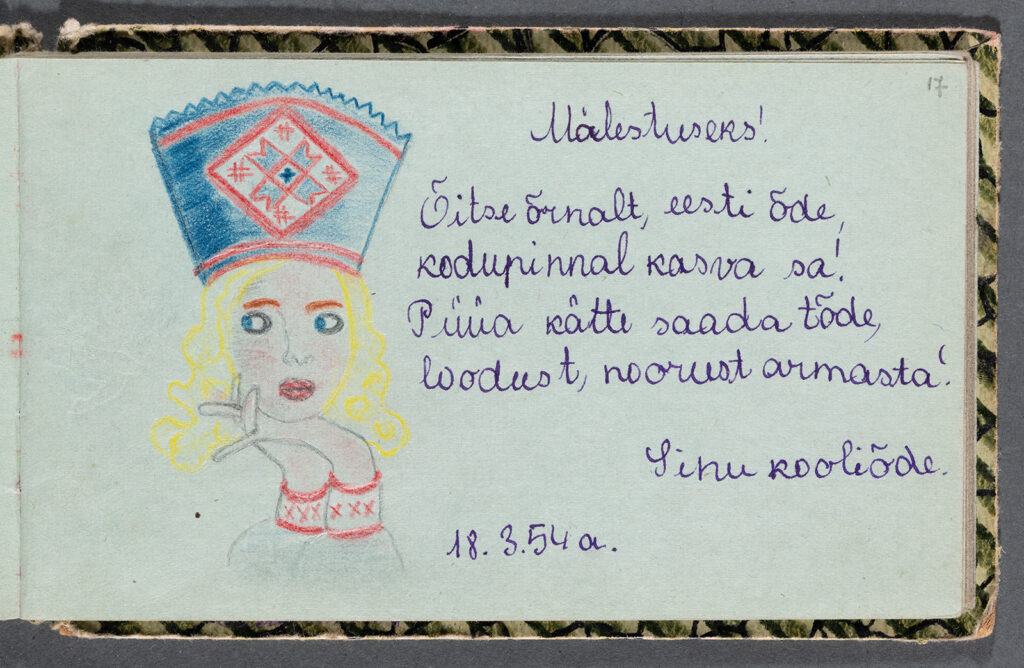 17
Mälestuseks!
Õitse õrnalt, eesti õde,
kodupinnal kasva sa!
Püüa kätte saada tõde,
loodust, noorust armasta!
Sinu kooliõde.
18. 3. 54 a.